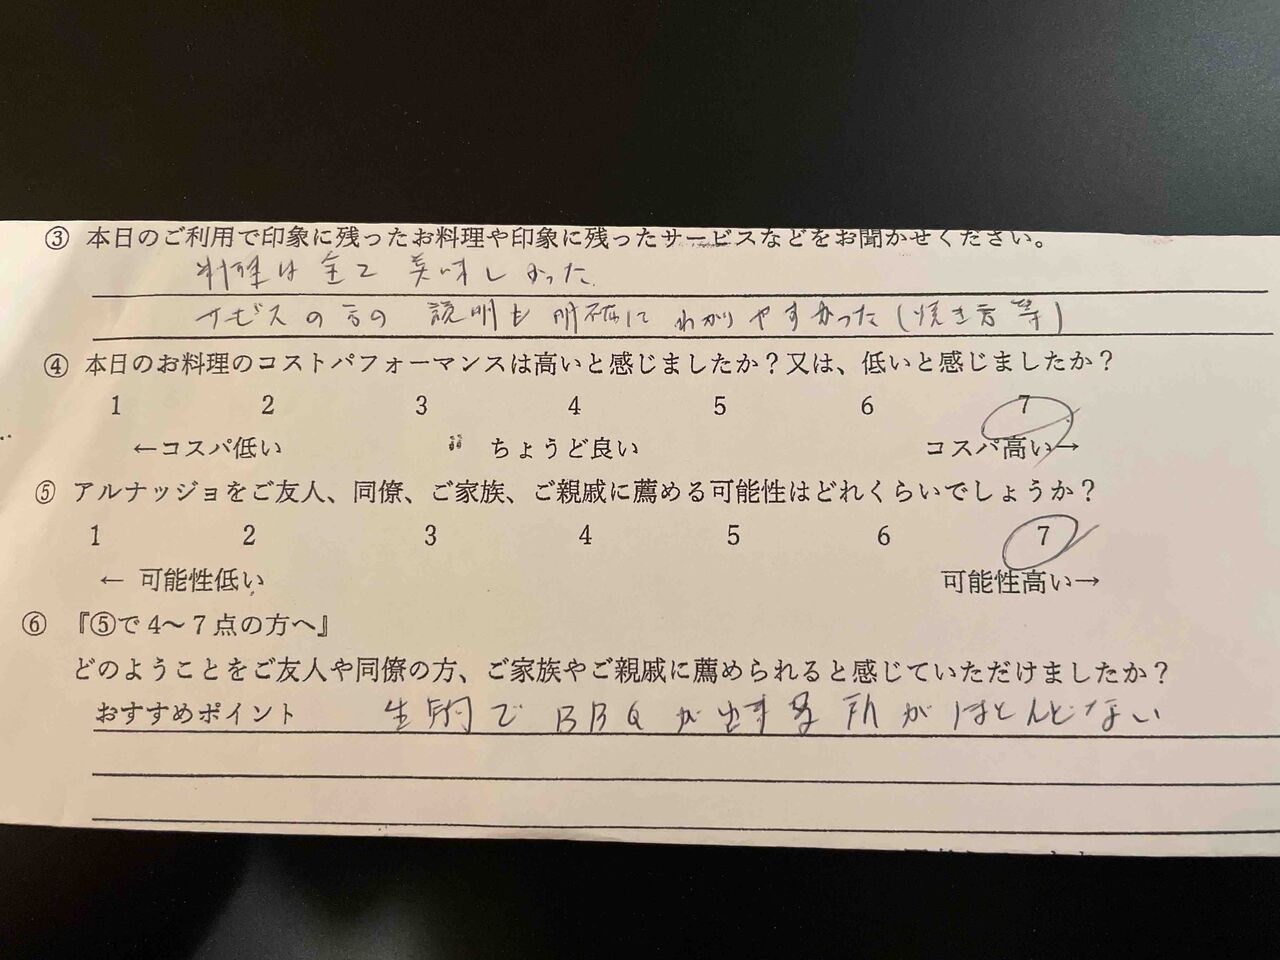 ③ 本日のご利用で印象に残ったお料理や印象に残ったサービスなどをお聞かせください。
料理は全て美味しかった.
サービスの方の説明も明確にわかりやすかった(焼き方等)
④ 本日のお料理のコストパフォーマンスは高いと感じましたか？又は、低いと感じましたか？
1 2 3 4 5 6 7
←コスパ低い ちょうど良い コスパ高い→
⑤ アルナッジョをご友人、同僚、ご家族、ご親戚に薦める可能性はどれくらいでしょうか？
1 2 3 4 5 6 7
← 可能性低い 可能性高い→
⑥ 『⑤で4～7点の方へ』
どのようことをご友人や同僚の方、ご家族やご親戚に薦められると感じていただけましたか？
おすすめポイント でBBQが出来る所がほとんどない